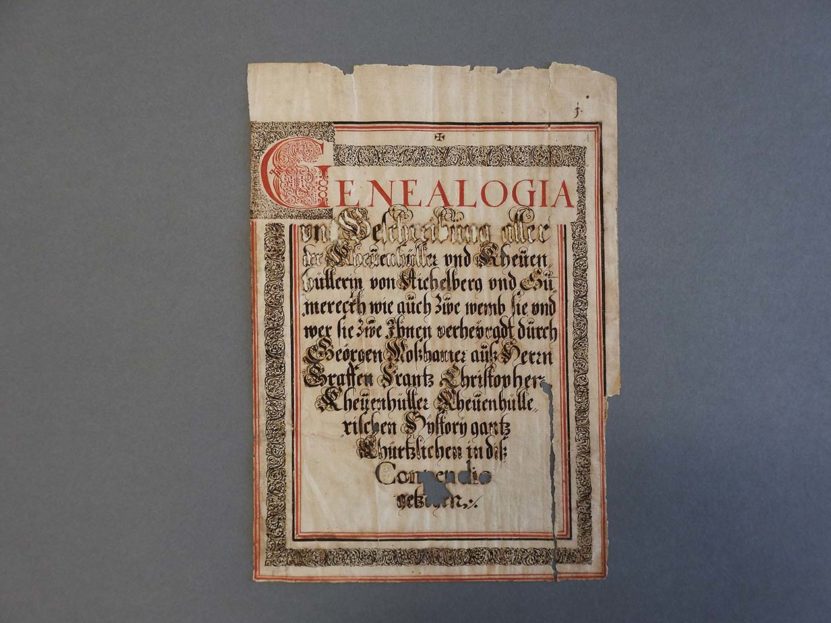 j.
GENEALOGIA
un Beschreibung aller
der Kheuenhüller vnd Kheüen
hüllerin von Aichelberg vnd Sŭ
meregkh wie aŭch zŭe wemb sie vnd
wer sie zŭe Ihnen verheyradt dŭrch
Geörgen Moßhamer auß Herrn
Graffen Frantz Christopher
Kheŭenhüller Kheŭenhülle
rischen Hystory gantz
Khŭrtzlichen in diß
Compendio
getzogen